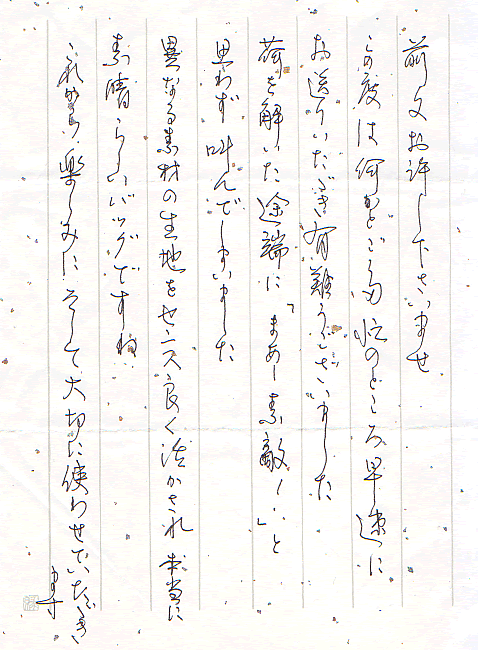 前文お許し下さいませ
この度は何かとご多忙のところ早速に
お送りいただき有難うございました
荷を解いた途端に「まあー素敵！！」と
思わず叫んでしまいました
異なる素材の生地をセンス良く活かされ本当に
素晴らしいバッグですね
これから楽しみにそして大切に使わせていただき
ます